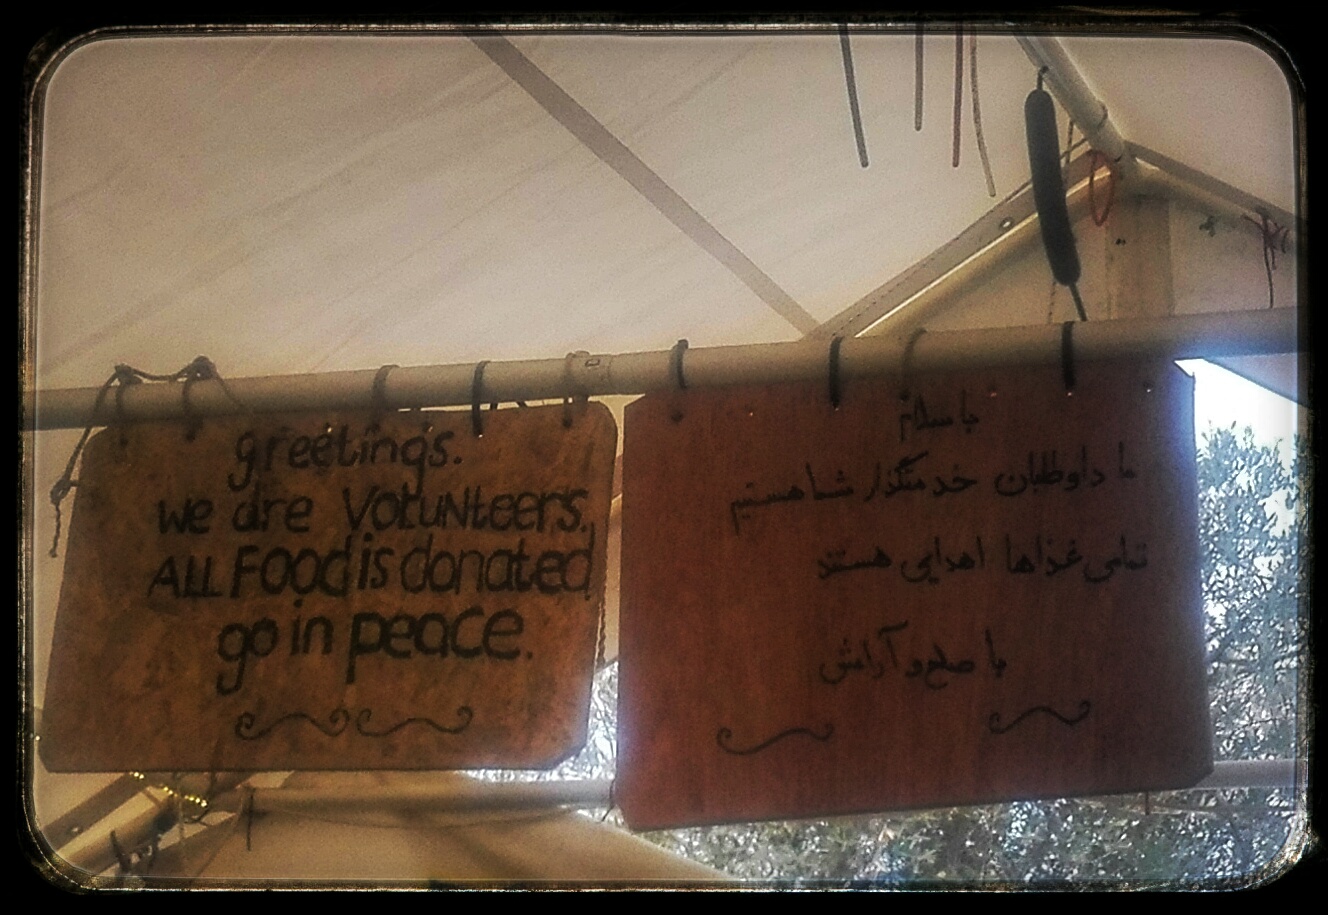 greetings.
we are VoluNteers.
ALL Food is donated
go in peace.
با سلام
ما داوطلبان خدمتگذار شما هستیم
تمامی غذاها اهدایی هستند
با صلح و آرامش